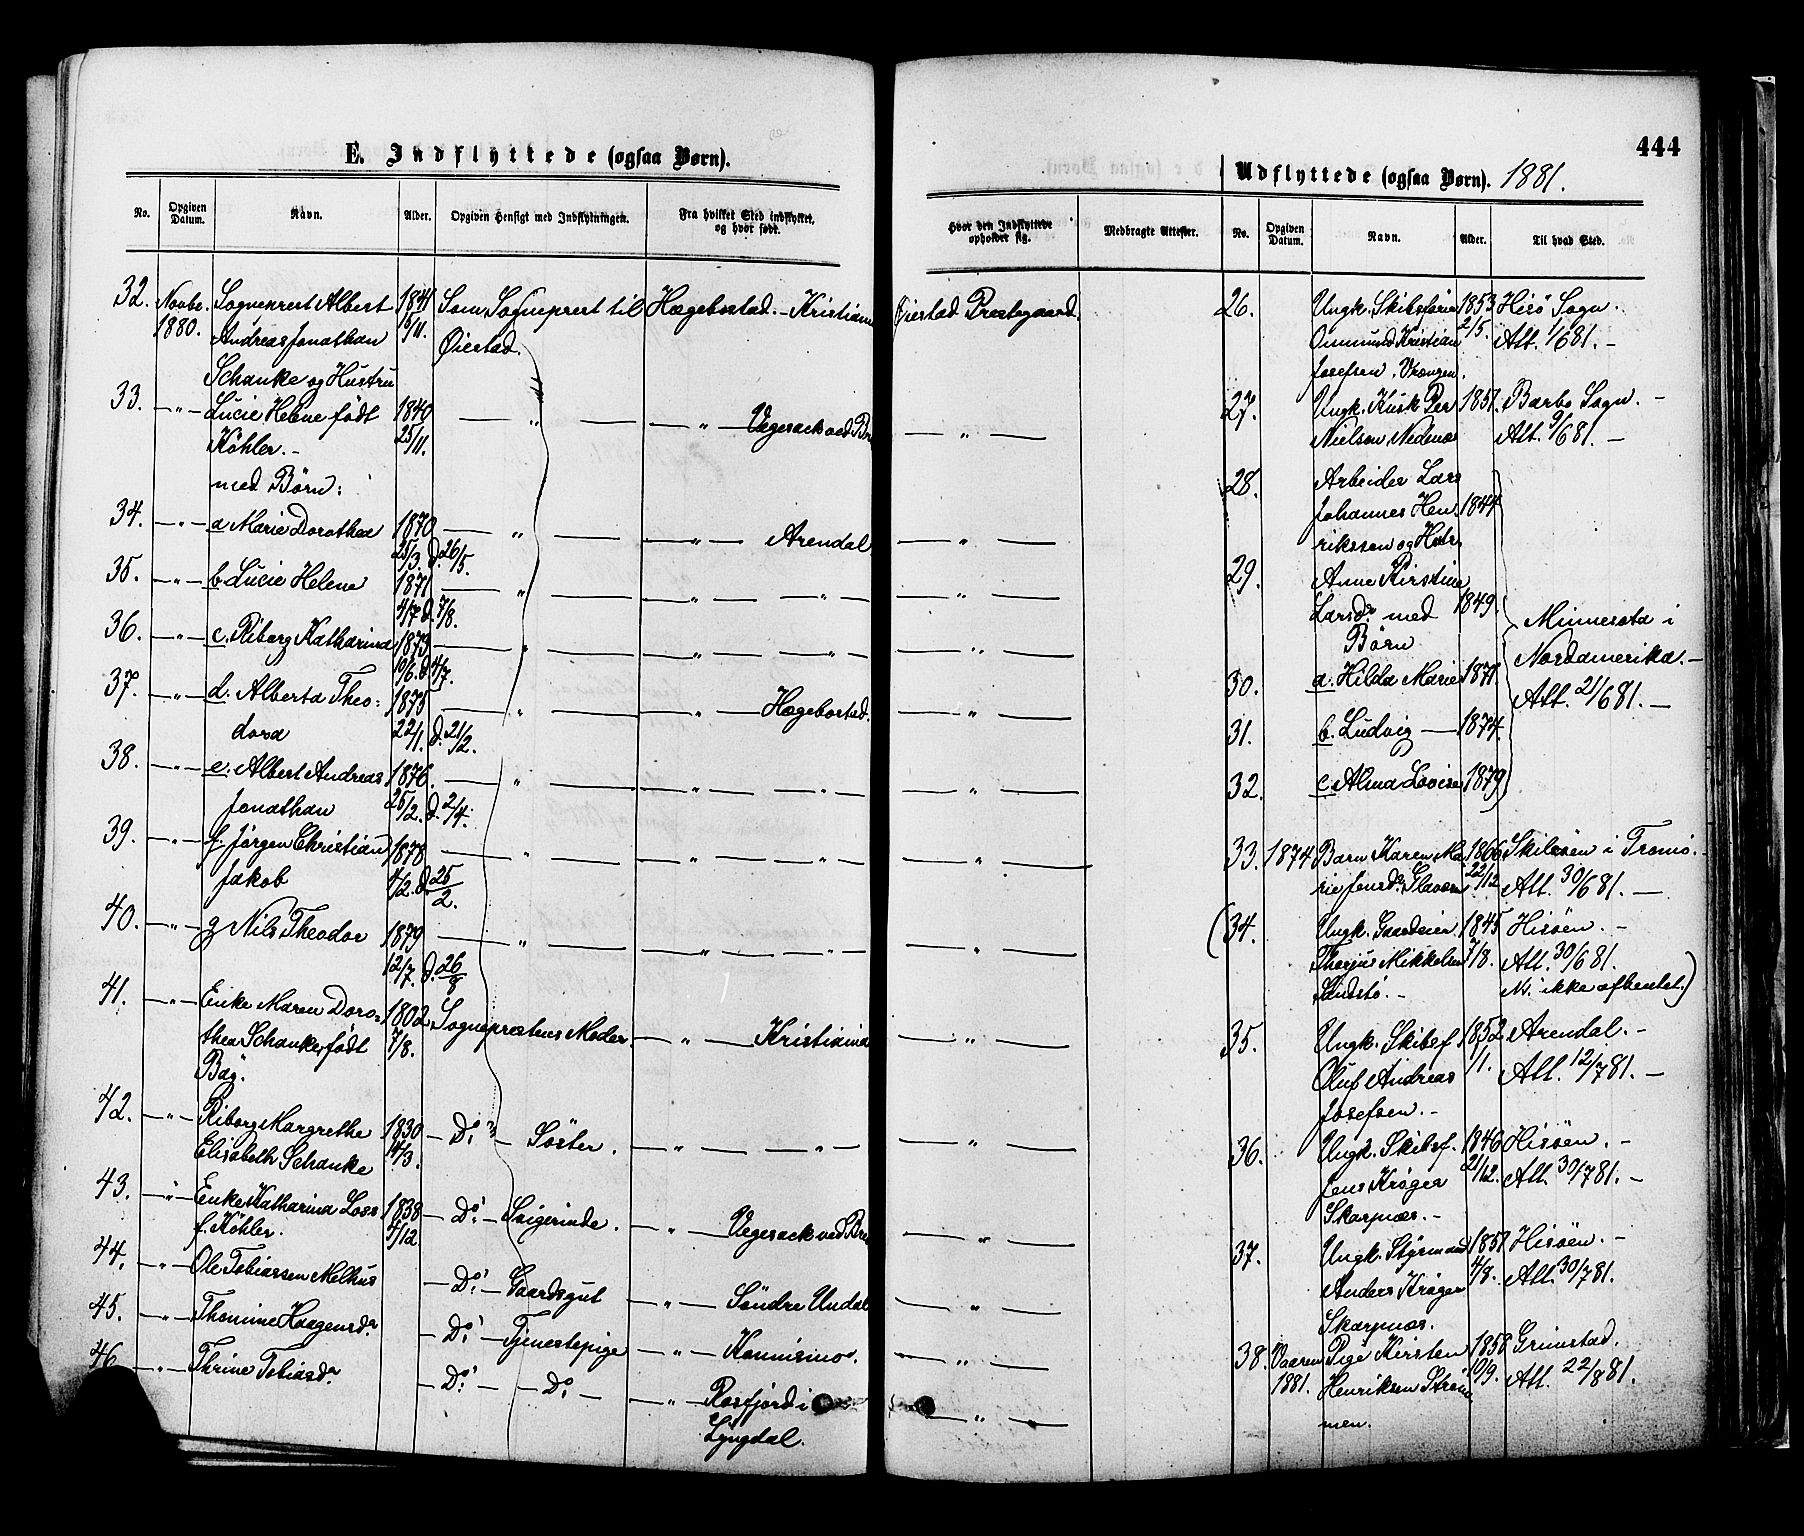 E. Indflyttede (ogsaa Børn).
No. Opgiven Datum. Navn. Alder. Opgiven Hensigt med Indflytningen. Fra hvilket Sted indflyttet, og hvor født.
Hvor den Indflyttede opholder sig. Medbragte Attester.
32. Novbr. Sogneprest Albert 1841 Som Sogneprest til Hægebostad. - Kristians Øiestad Prestegaard.
1880. Andreas Jonathan 16/11. Øiestad.
Schanke og Hustru
33. — " — Lucie Helene født 1840 — " — — " — Vegesack ved Br — " —
Köhler. - 25/11.
med Børn:
34. — " — a Marie Dorothea 1870 — " — — " — Arendal. — " —
25/3. d. 26/5.
35. — " — b Lucie Helene 1871 — " — — " — — " — — " —
4/7 d. 7/8.
36. — " — c. Riborg Katharina 1873 — " — — " — — " — — " —
10/6. d 4/7.
37. — " — d. Alberta Theo- 1875 — " — — " — Hægebostad. — " —
dora 22/1. d. 21/2.
38. — " — e. Albert Andreas 1876 — " — — " — — " — — " —
Jonathan 25/2. d. 2/4.
39. — " — f. Jørgen Christian 1878 — " — — " — — " — — " —
Jakob 4/2. d. 25/2.
40. — " — g Nils Theodor 1879 — " — — " — — " — — " —
12/7. d. 26/8
41. — " — Enke Maren Doro- 1802. Sogneprestens Moder. — " — Kristiania — " —
thea Schanke, født 7/8.
42. — " — Riborg Margrethe 1830 — Do — Søster. — " — — " — — " —
Elisabeth Schanke 14/3.
43. " Enke Katharina Loss 1838 — Do — Svigerinde. — " — Vegesack ved Bre — " —
f. Köhler. 4/12
44. — " — Ole Tobiassen Melhus — Do — Gaardsgut — " — Söndre Undal — " —
45. — " — Thomine Haagensdr. — Do — Tjenestepige — " — — " —
46 — " — Thrine Tobiasdr. — Do — — Do — — " — Rosfjord i — " —
Lyngdal.
444
Udflyttede (ogsaa Børn). 1881.
No. Opgiven Datum. Navn. Alder. Til hvad Sted.
26. Ungk. Skibsfører 1853 Hisö Sogn.
Ommund Kristian 2/5. Att. 1/6 81. -
Josefsen, Vrengen.
27. Ungk. Kusk Per 1851. Barbo Sogn. -
Nielsen Nedenæs Att. 9/6 81. —
28. Arbeider Lars
Johannes Hen- 1844
rikssen og Hstr.
29. Anne Kirstine
Larsdr. med 1849. Minnesota i
Børn Nordamerika. -
30. a. Hilda Marie 1871 Att. 21/6 81. —
31. b. Ludvig — 1874.
32. c Alma Lovise 1879
33. 1874 Barn Karen Ma- 1866 Skilsöen i Tromö.
rie Jensdr. 22/12 Att. 30/6 81. —
(34. Ungk. Gaardeier 1845 Hisöen. -
Therjus Mikkelsen 7/8. Att. 30/6 81.
Sandstø. - Ns. ikke afhentet.)
35. Ungk. Skibsf 1852 Arendal. -
Oluf Andreas 1/1. Att. 12/7 81. —
Josefsen. -
36. Ungk. Skibsf. 1846 Hisöen. -
Jens Krøger 21/12. Att. 30/7 81. -
Skarpnæs. -
37. Ungk. Styrmand 1851 Hisöen. -
Anders Krøger 4/8. Att. 30/7 81.
Skarpnæs.
38. Vaaren Pige Kirsten 1858 Grimstad.
1881. Henriksen Ström- 10/9. Att. 22/8 81.
men.